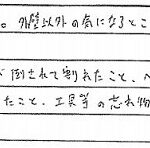 。外壁以外の気になるとこ
倒されて割れたこと、ヘ
たこと、工具等の忘れ物